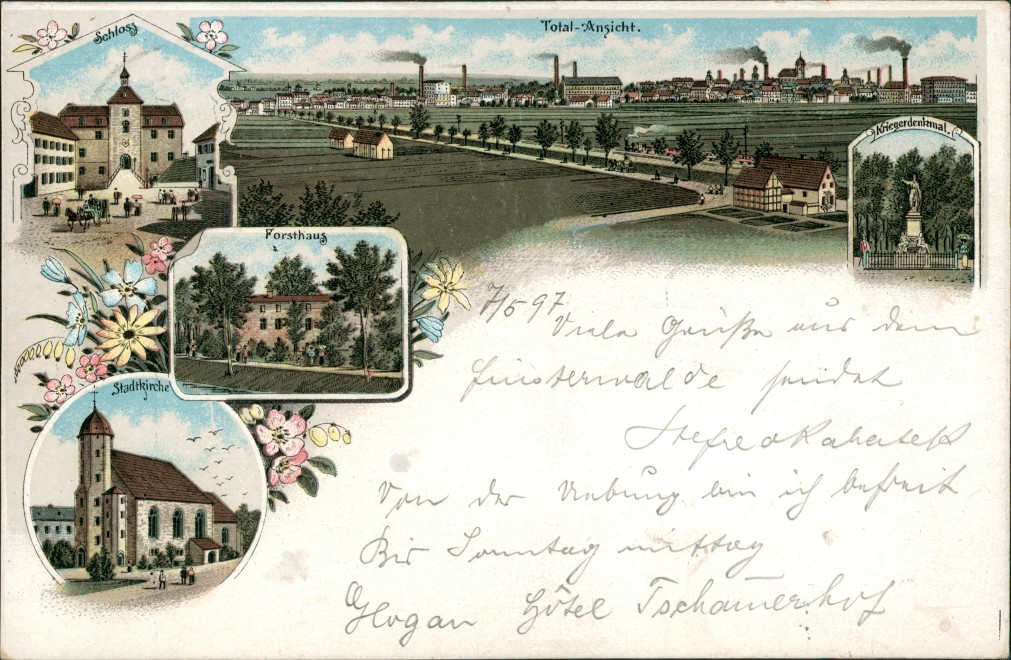 Schloss
Total-Ansicht.
Kriegerdenkmal.
Forsthaus
Stadtkirche
7/5 97
Viele Grüße aus dem
Finsterwalde sendet
Von der Uebung bin ich befreit
Bis Sonntag mittag
Glogau Hôtel Tschammerhof